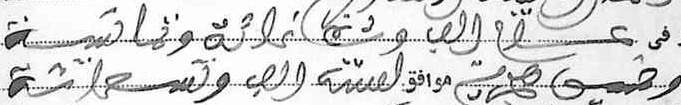 في عام الف وثلاثمائة وثمانية
وخمسين هجري موافق لسنة الف وتسعمائة